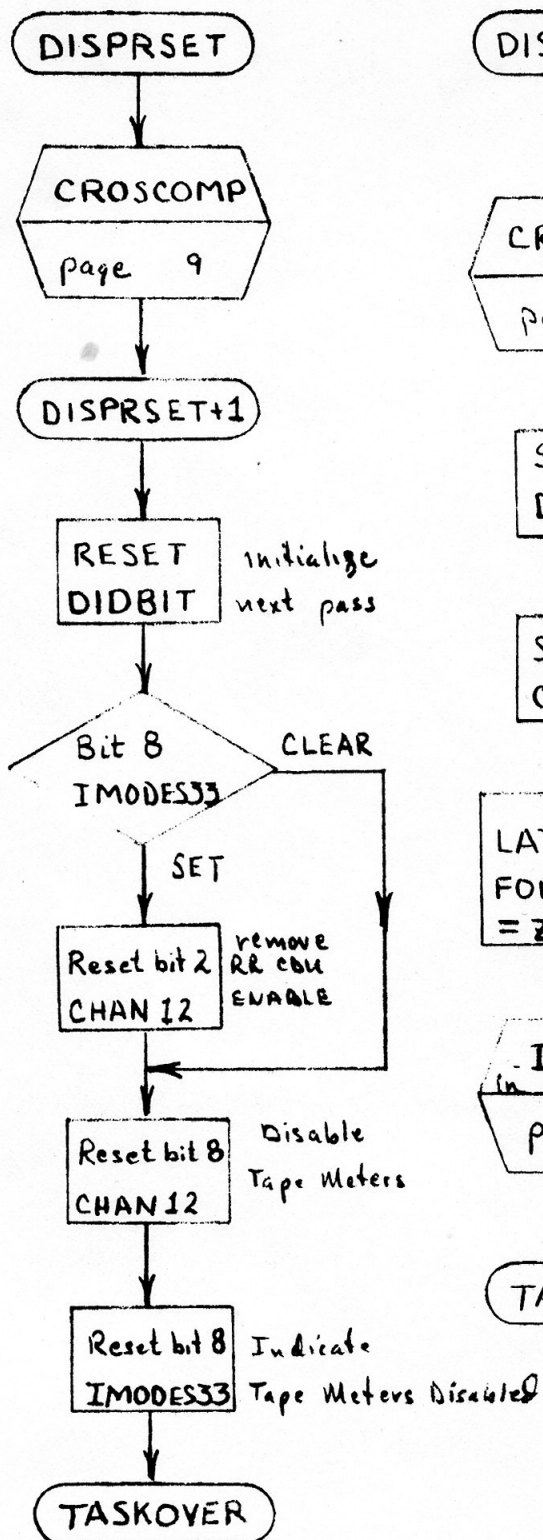 DISPRSET
CROSCOMP
page 9
DISPRSET+1
RESET
DIDBIT
initialize
next pass
Bit 8
IMODES33
CLEAR
SET
Reset bit 2
CHAN 12
remove
RR CDU
ENABLE
Reset bit 8
CHAN 12
Disable
Tape Meters
Reset bit 8
IMODES33
Indicate
Tape Meters Disabled
TASKOVER
DIS
CR
LAT
in